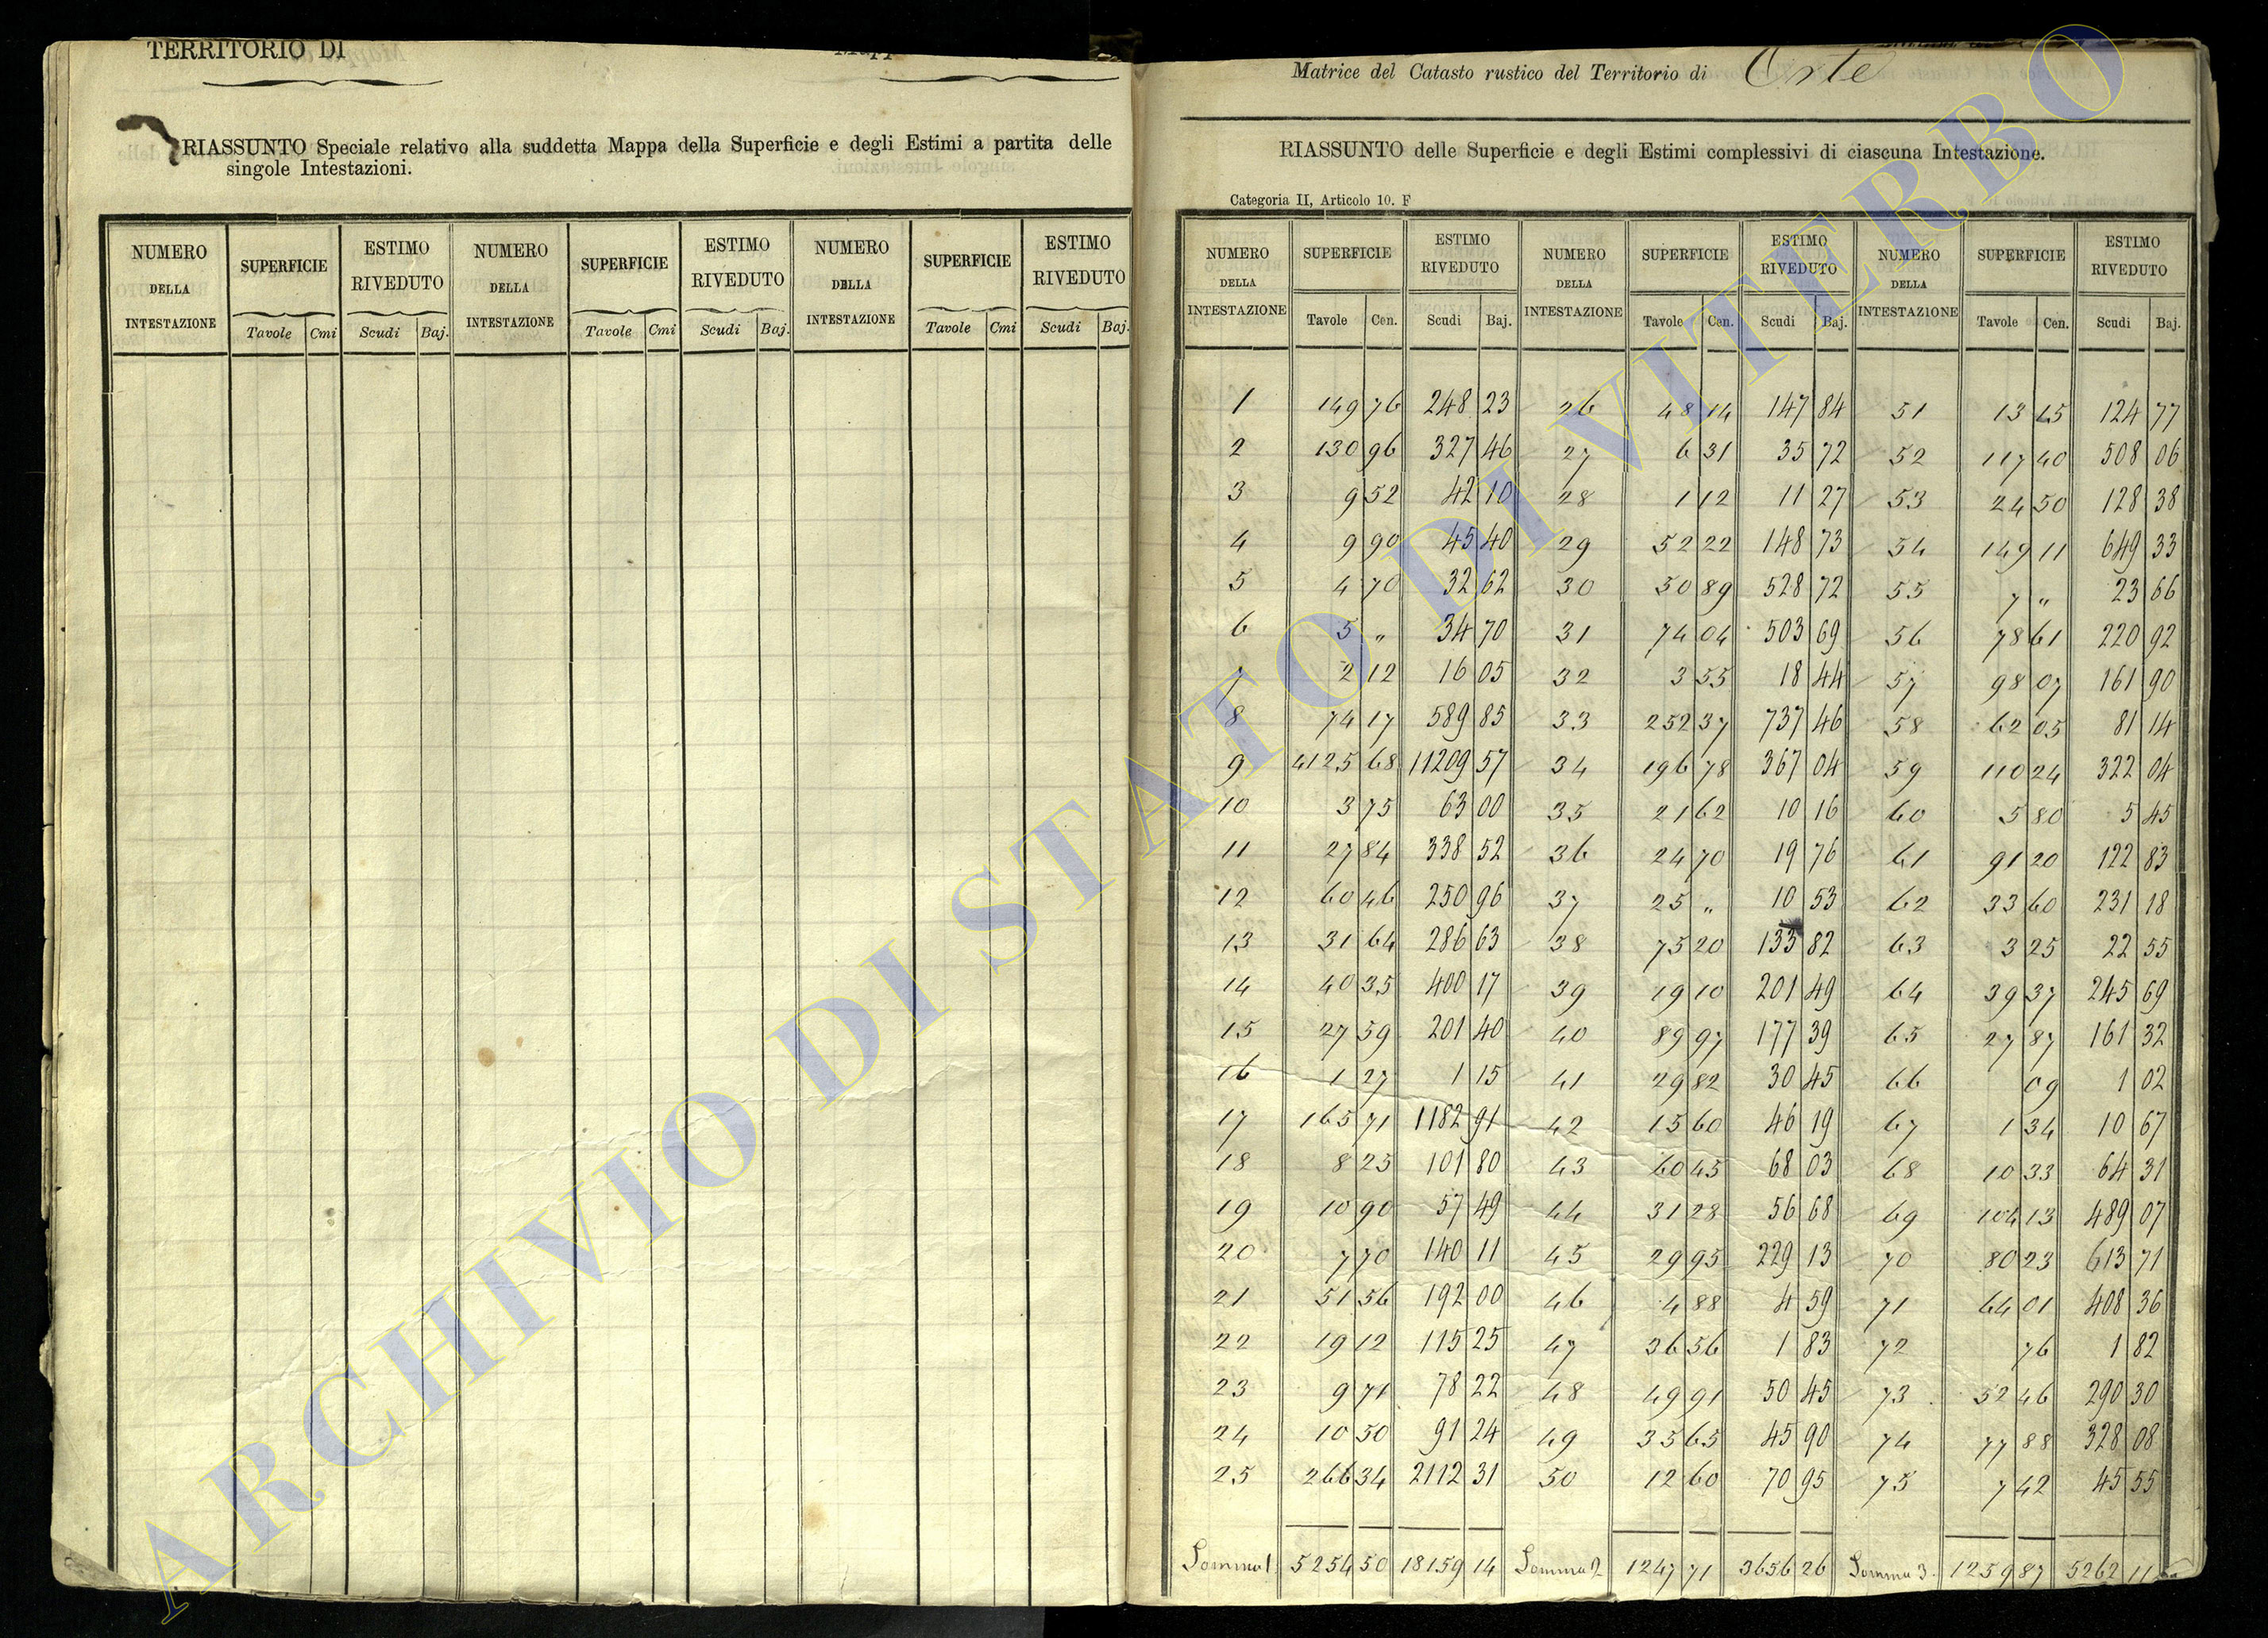 TERRITORIO DI
RIASSUNTO Speciale relativo alla suddetta Mappa della Superficie e degli Estimi a partita delle
singole Intestazioni.
NUMERO DELLA INTESTAZIONE SUPERFICIE ESTIMO RIVEDUTO NUMERO DELLA INTESTAZIONE SUPERFICIE ESTIMO RIVEDUTO NUMERO DELLA INTESTAZIONE SUPERFICIE ESTIMO RIVEDUTO
Tavole Cmi Scudi Baj. Tavole Cmi Scudi Baj. Tavole Cmi Scudi Baj.
Matrice del Catasto rustico del Territorio di Orte
RIASSUNTO delle Superficie e degli Estimi complessivi di ciascuna Intestazione.
Categoria II, Articolo 10. F
NUMERO DELLA INTESTAZIONE SUPERFICIE ESTIMO RIVEDUTO NUMERO DELLA INTESTAZIONE SUPERFICIE ESTIMO RIVEDUTO NUMERO DELLA INTESTAZIONE SUPERFICIE ESTIMO RIVEDUTO
Tavole Cen. Scudi Baj. Tavole Cen. Scudi Baj. Tavole Cen. Scudi Baj.
1 149 76 248 23 26 48 14 147 84 51 13 45 124 77
2 130 96 327 46 27 6 31 35 72 52 117 40 508 06
3 9 52 42 10 28 1 12 11 27 53 24 50 128 38
4 9 90 45 40 29 52 22 148 73 54 149 11 649 33
5 4 70 32 62 30 50 89 528 72 55 7 „ 23 66
6 5 „ 34 70 31 74 04 503 69 56 78 61 220 92
7 2 12 16 05 32 3 55 18 44 57 98 07 161 90
8 74 17 589 85 33 252 37 737 46 58 62 05 81 14
9 4125 68 11209 57 34 196 78 367 04 59 110 24 322 04
10 3 75 63 00 35 21 62 10 16 60 5 80 5 45
11 27 84 338 52 36 24 70 19 76 61 91 20 122 83
12 60 46 250 96 37 25 „ 10 53 62 33 60 231 18
13 31 64 286 63 38 75 20 133 82 63 3 25 22 55
14 40 35 400 17 39 19 10 201 49 64 39 37 245 69
15 27 59 201 40 40 89 97 177 39 65 27 87 161 32
16 1 27 1 15 41 29 82 30 45 66 09 1 02
17 165 71 1182 91 42 15 60 46 19 67 1 34 10 67
18 8 25 101 80 43 60 45 68 03 68 10 33 64 31
19 10 90 57 49 44 31 28 56 68 69 104 13 489 07
20 7 70 140 11 45 29 95 229 13 70 80 23 613 71
21 51 56 192 00 46 4 88 4 59 71 64 01 408 36
22 19 12 115 25 47 36 56 1 83 72 76 1 82
23 9 71 78 22 48 49 91 50 45 73 52 46 290 30
24 10 50 91 24 49 35 65 45 90 74 77 88 328 08
25 266 34 2112 31 50 12 60 70 95 75 7 42 45 55
Somma 1 5254 50 18159 14 Somma 2 1247 71 3656 26 Somma 3. 1259 87 5262 11
ARCHIVIO DI STATO DI VITERBO